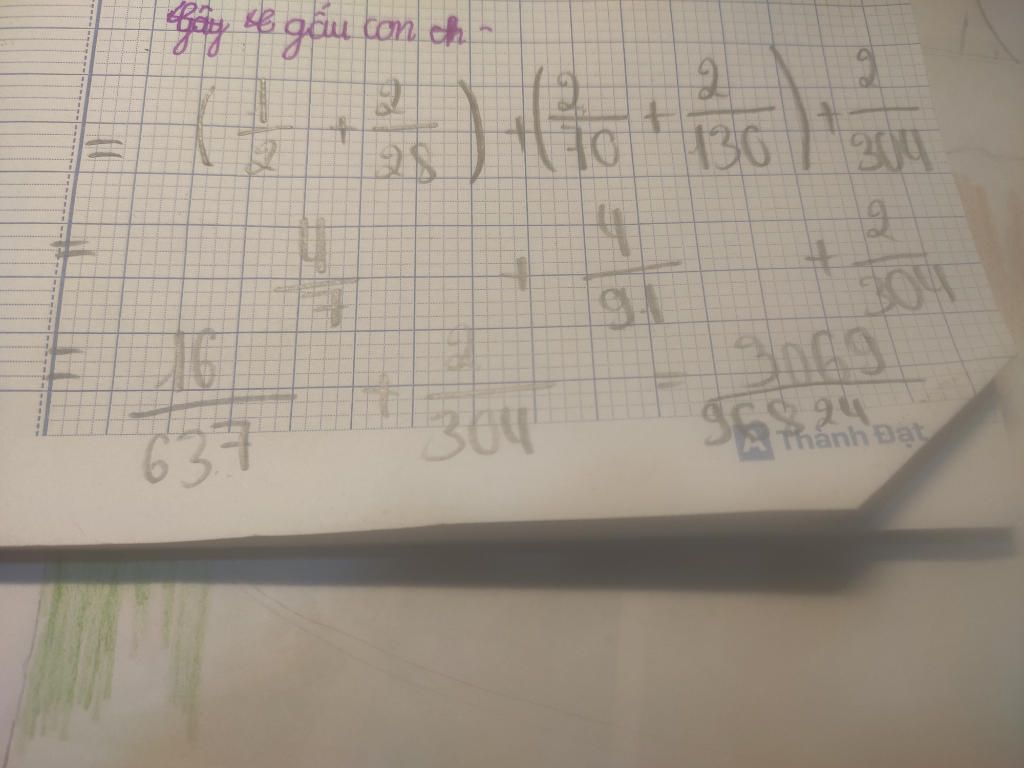 gấu con
= (1/2 + 2/28) + (2/70 + 2/130) + 2/304
= 4/7 + 4/91 + 2/304
= 16/637 + 2/304 = 3069/96824
Thành Đạt